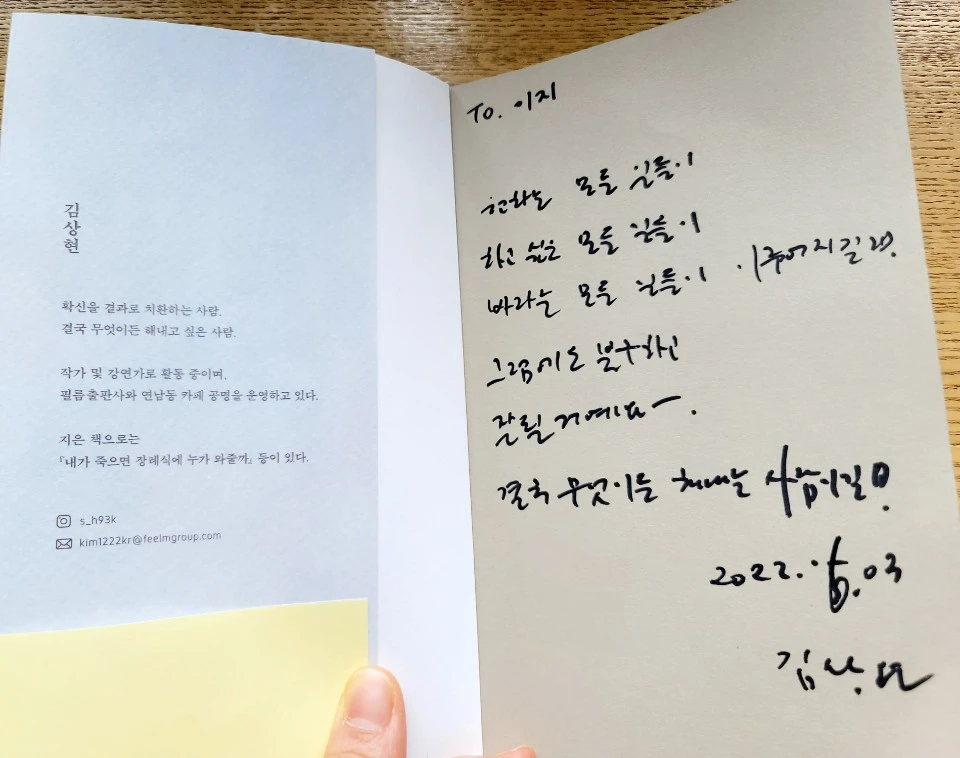 김상현
확신을 결과로 치환하는 사람.
결국 무엇이든 해내고 싶은 사람.
작가 및 강연가로 활동 중이며,
필름출판사와 연남동 카페 공명을 운영하고 있다.
지은 책으로는
『내가 죽으면 장례식에 누가 와줄까』 등이 있다.
s_h93k
kim1222kr@feelmgroup.com
To. 이지
원하는 모든 일들이
하고 싶은 모든 일들이
바라는 모든 일들이 이루어지길
그럼에도 불구하고
잘 될 거예요ㅡ.
결국 무엇이든 해내는 사람이길
2022. .03
김상현